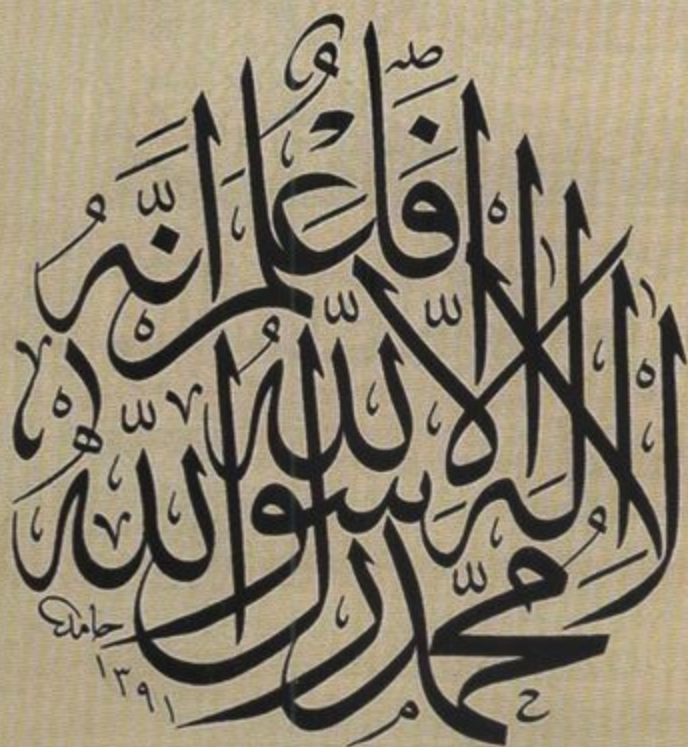 فَاعْلَمْ اَنَّهُ
لَا اِلٰهَ اِلَّا اللّٰهُ
مُحَمَّدٌ رَسُولُ اللّٰهِ
حامد
١٣٩١